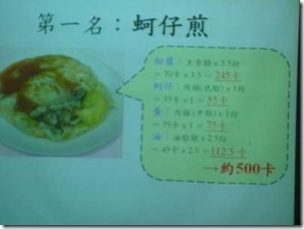 第一名：蚵仔煎
粉漿：主食類x3.5份
=70卡x3.5=245卡
蚵仔：肉類(低脂)x1份
=55卡x1=55卡
蛋：肉類(中脂)x1份
=75卡x1=75卡
油：油脂類x2.5份
=45卡x2.5=112.5卡
→約500卡